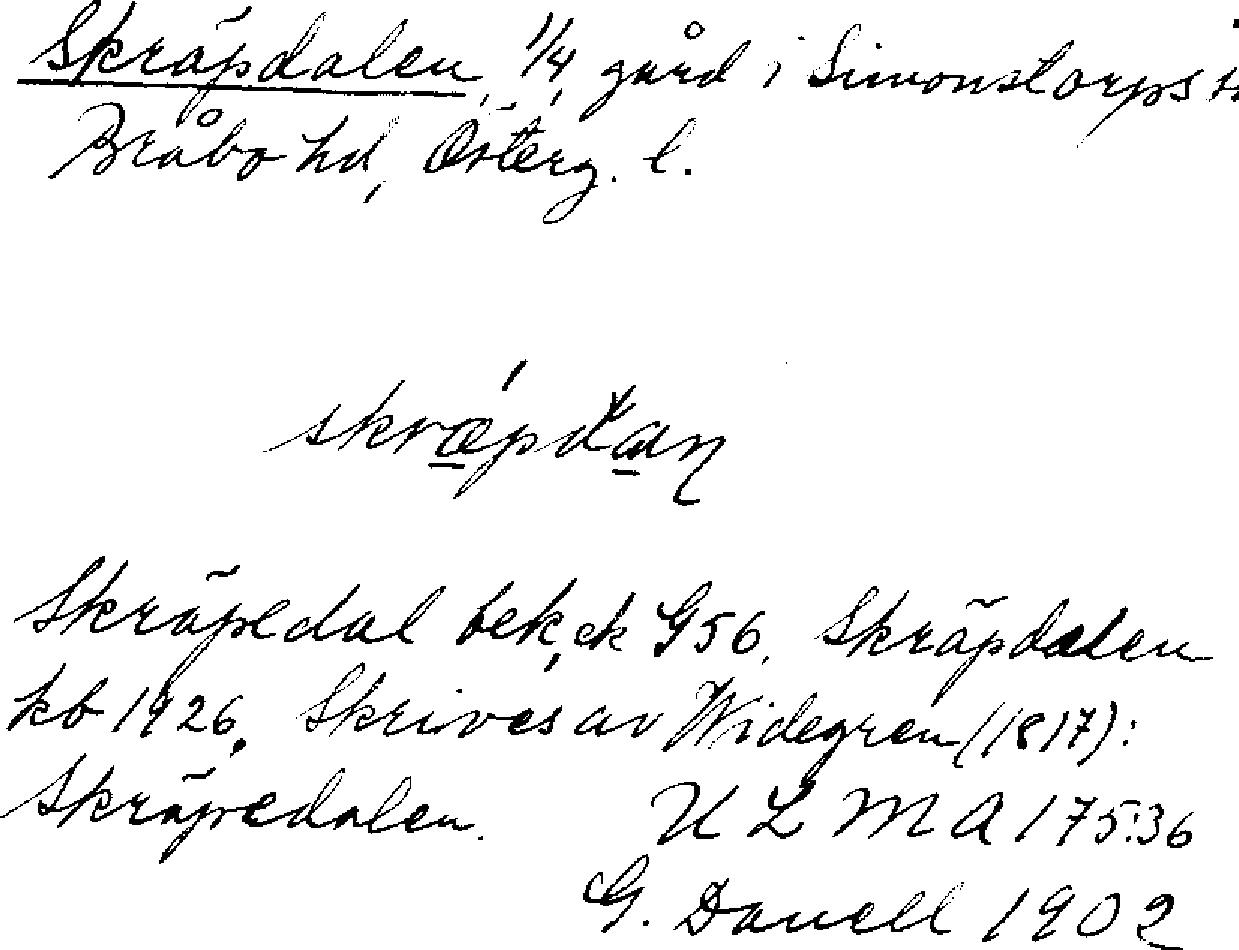 Skräpdalen, 1/4, gård i Simonstorps
Bråbo hd, Österg. l.
Skräpedal bek, ek G 56. Skräpdalen
kb 1926. Skrives av Widegren (1817):
Skräpedalen.
ULMA 175:36
G. Danell 1902